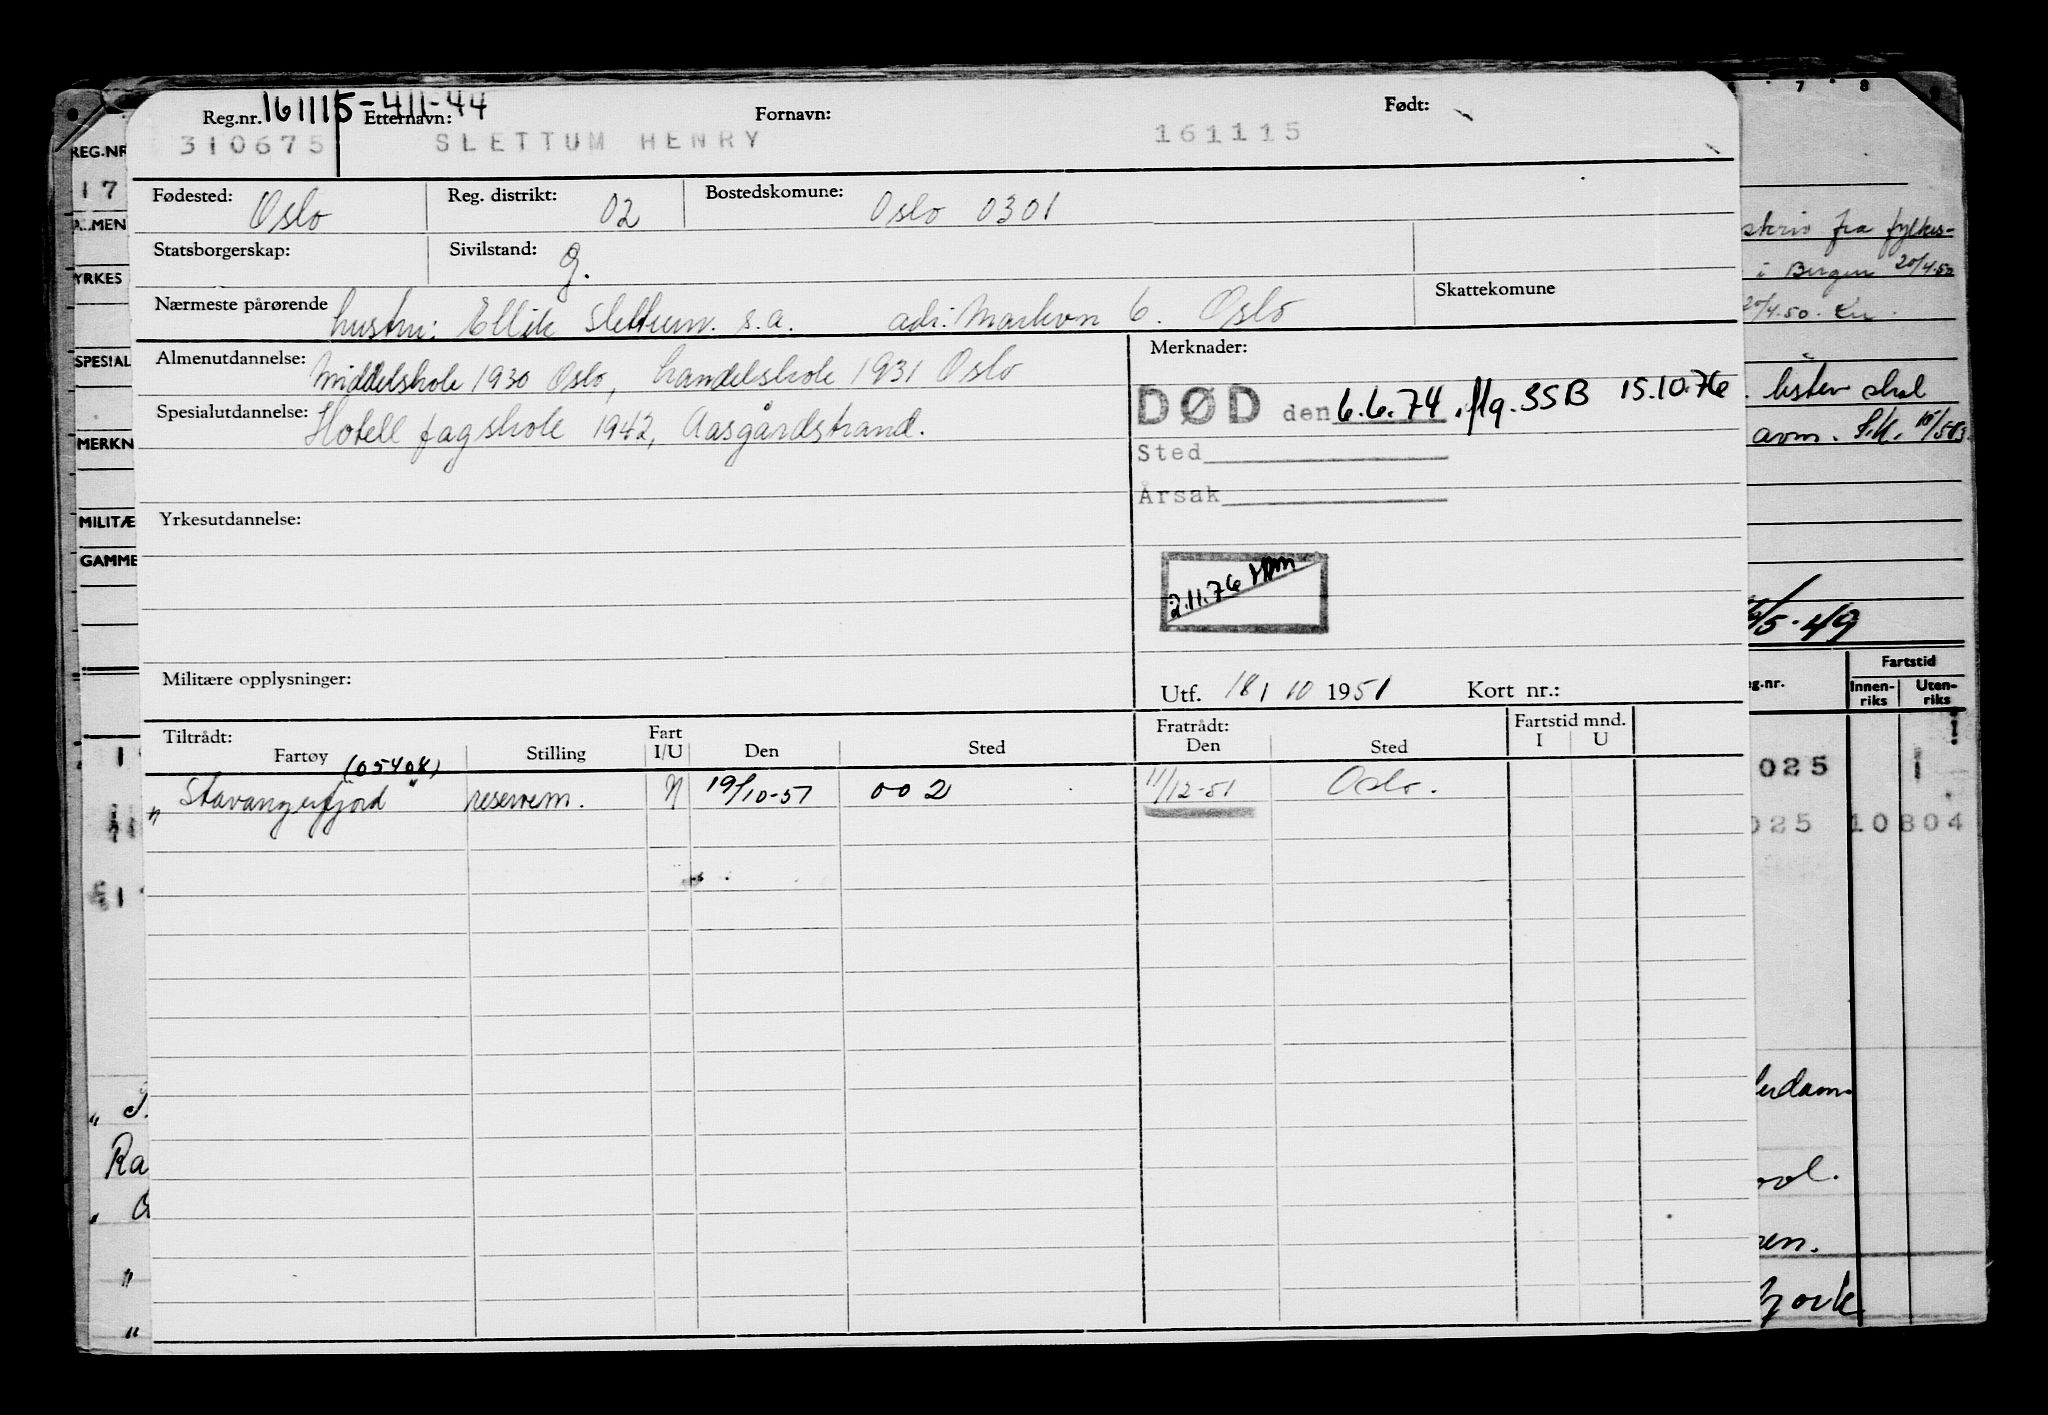 Reg.nr. 161115-411-44 Etternavn: Fornavn: Født:
310675 SLETTUM HENRY 161115
Fødested: Oslo Reg. distrikt: 02 Bostedskomune: Oslo 0301
Statsborgerskap: Sivilstand: g.
Nærmeste pårørende hustru: Ellik Slettum. s.a. adr: Markvn 6. Oslo Skattekomune
Almenutdannelse: Middelskole 1930 Oslo, handelskole 1931 Oslo Merknader:
Spesialutdannelse: Hotell fagskole 1942, Aasgårdstrand. DØD den 6.6.74. flg. SSB 15.10.76
Sted
Årsak
Yrkesutdannelse:
2.11.76
Militære opplysninger: Utf. 18/10 1951 Kort nr.:
Tiltrådt: Fart Fratrådt: Fartstid mnd.
Fartøy Stilling I/U Den Sted Den Sted I U
(05408)
" Stavangerfjord" reservem. 19/10-51 002 11/12-51 Oslo.
REG.NR
17
MEN
YRKES
SPESIAL
MERKN
MILITÆ
GAMME
Ra
7 8
skriv fra fylkes-
i Bergen 20/4.50
20/4.50.
listen skal
avm. S.K.
/5-49
Fartstid
g.nr. Innen- Uten-
riks riks
025 1
025 10804
erdam
ool.
en.
York